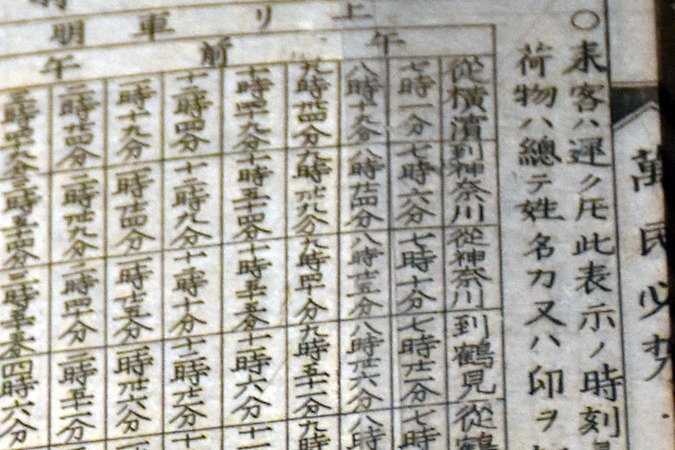 萬民必
○来客ハ遅ク𪜈此表示ノ時刻
荷物ハ總テ姓名カ又ハ印ヲ
上リ車明
午前
午
從横濱到神奈川從神奈川到鶴見從鶴
七時一分七時六分七時十分七時廿一分七時
八時十九分八時廿四分八時廿五分八時廿六分八時
九時廿四分九時廿九分九時四十分九時五十一分九時
十時四十九分十時五十四分十時五十五分十一時六分十
十二時四分十二時九分十二時十分十二時廿一分
一時十九分一時廿四分一時廿五分一時廿六分
二時廿四分二時廿九分二時四十分二時五十一分
三時五十四分三時五十五分四時六分